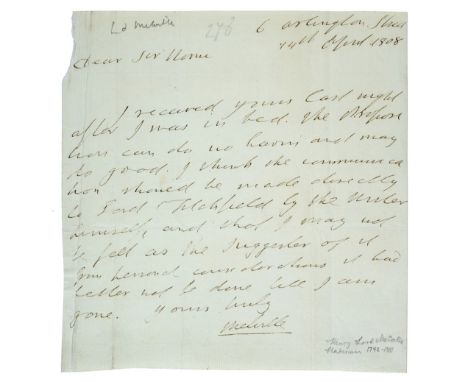 Ld Melville
248
6 Arlington Street
14th April 1808
Dear Sir Home
I received yours last night
after I was in bed. The Proposi
tion can do no harm and may
do good. I think the communica
tion should be made directly
to Lord Titchfield by the Writer
himself, and that I may not
be felt as the suggester of it
from personal considerations it had
better not be done till I am
gone. Yours truly
Melville
Henry Lord Melville
Statesman 1742-1811